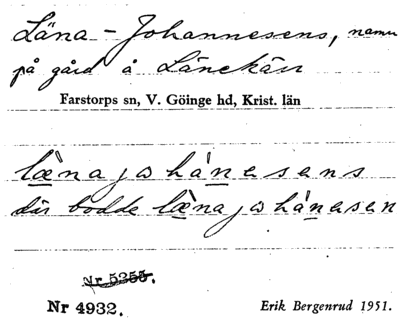 Läna-Johannesens, namn
på gård å Länekärr
Farstorps sn, V. Göinge hd, Krist. län
læ̀na jωhánesens
där bodde læ̀na jωhánesen
Nr 5355.
Nr 4932.
Erik Bergenrud 1951.